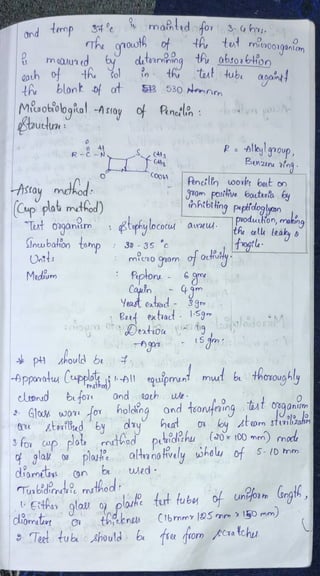 and temp 37°c is maintned for 3-4 hrs.
The growth of the test microorganism
is measured by determining the absorbtion
each of the sol in the test tube against
the blank at 530
Microbiological Assay of Pencilin :
Structure :
O
R - C - N H S CH3
CH3
O N COOH
R = Alkyl group,
Benzene ring.
Assay method:
(Cup plate method)
Pencilin works best on
gram positive bacteria by
inhibiting peptidoglycan
production, making
the cells leaky &
fragile.
Test organism : staphylococcus aureus.
Incubation temp : 30-35 °c
Units : micro gram of activity.
Medium : Peptone - 6 gms
Casein - 4 gm
Yeast extract - 3gm
Beef extract - 1.5gm
Dextrose - 1g
-Agar - 15 gm.
* pH should be 7
-Apparatus (cupplate method) : 1. All equipment must be thoroughly
cleaned before and each use.
2. Glass ware for holding and transfering test organism
are sterilized by dry heat or by steam sterilization
3. For cup plate method petridishes (20 x 100 mm) made
of glass or plastic alternatively wholes of 5-10 mm
diameters can be used.
Turbidimetric method :
1. Either glass or plastic test tubes of uniform length,
diameters or thickness (16mm x 125 mm x 150 mm)
2. Test tube should be free from scratches